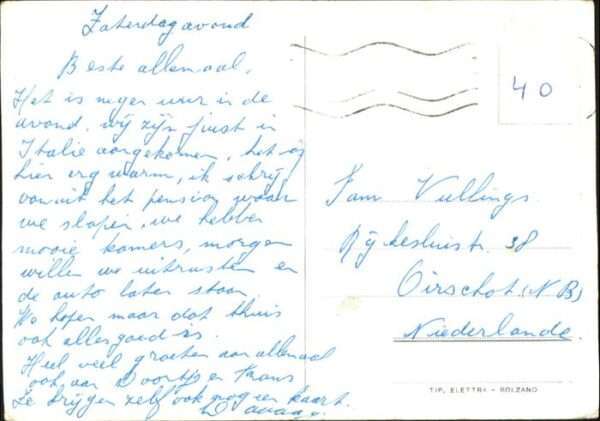 Zaterdagavond
Beste allemaal,
Het is negen uur in de
avond. wij zijn juist in
Italie aangekomen, het is
hier erg warm, ik schrijf
vanuit het pension waar
we slapen, we hebben
mooie kamers, morgen
willen we uitrusten en
de auto laten staan
We hopen maar dat thuis
ook alles goed is.
Heel veel groeten aan allemaal
ook aan Doortje en Frans
Ze krijgen zelf ook nog een kaart.
40
Fam Vullings
Rijkesluisstr. 38
Oirschot (N.B)
Niederlande
TIP. ELETTRA - BOLZANO